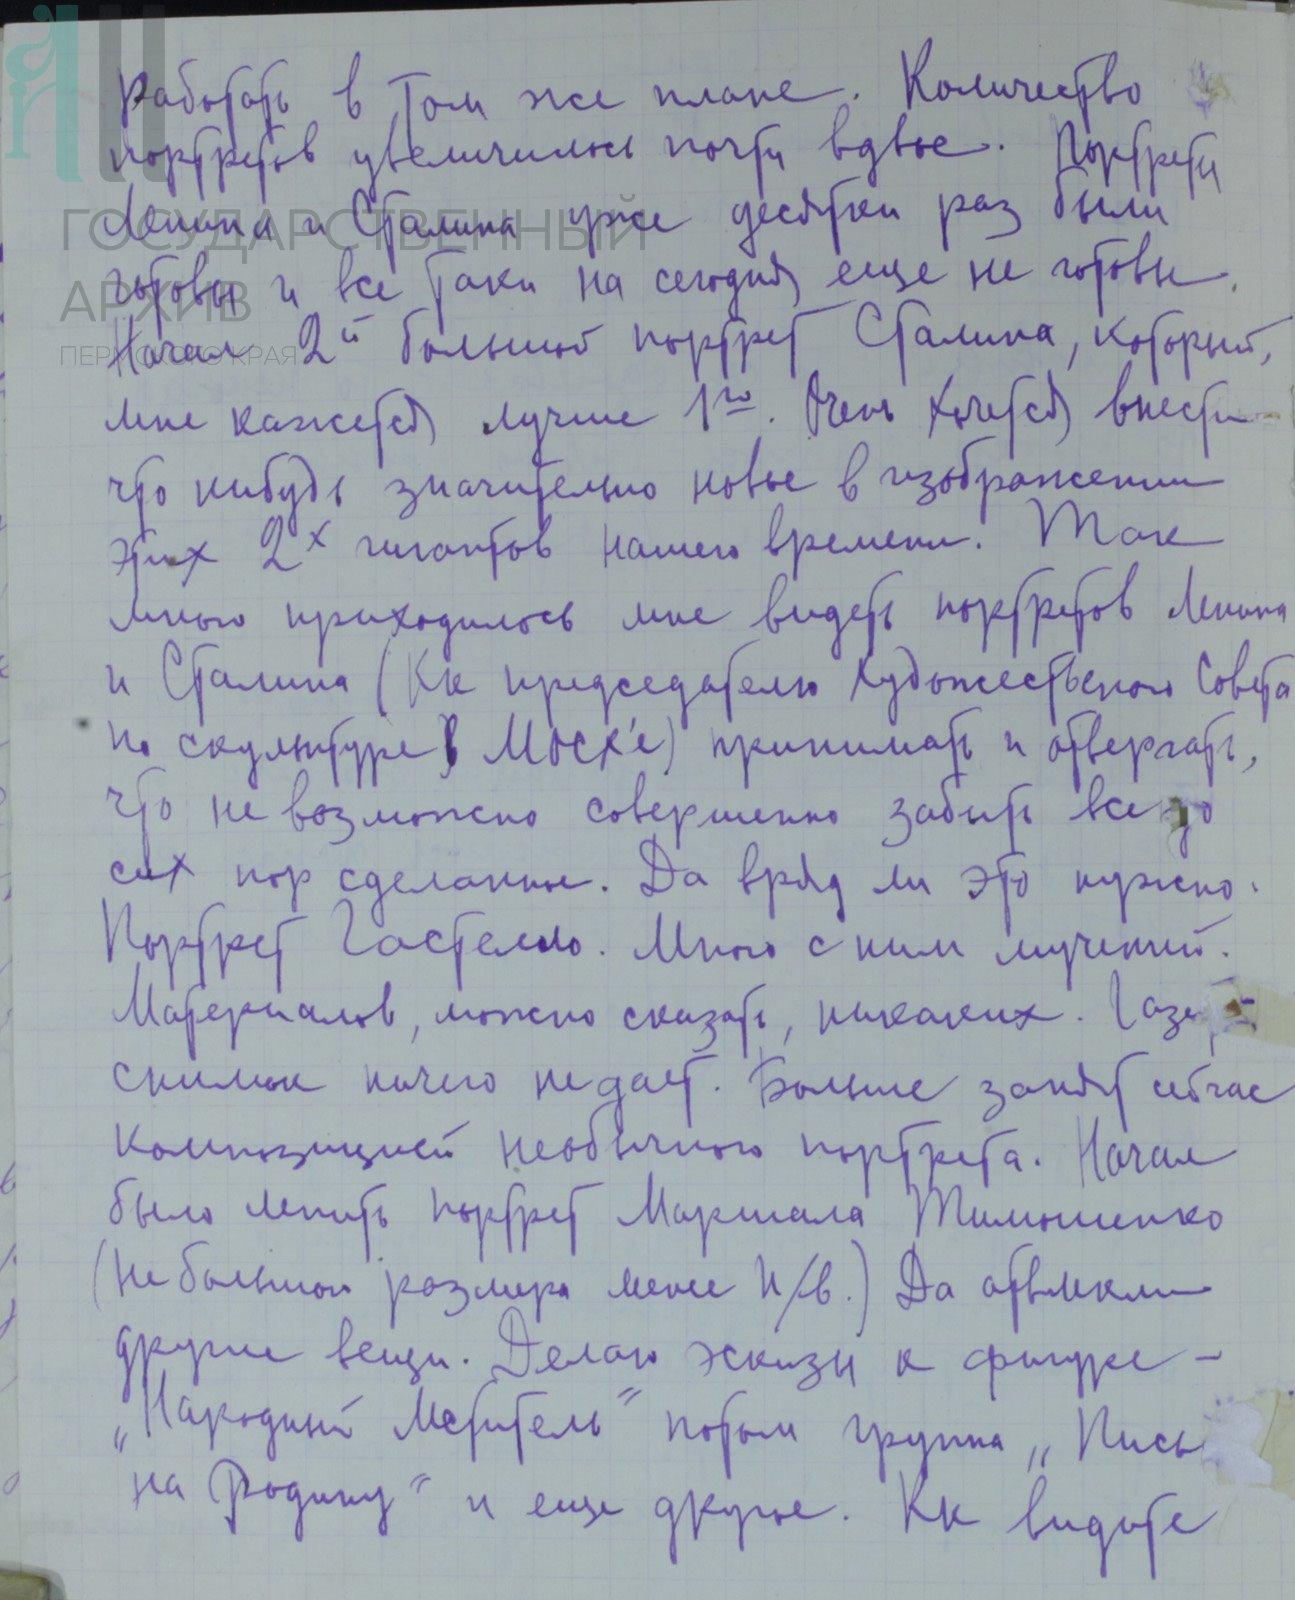 работать в том же плане. Количество
портретов увеличилось почти вдвое. Портреты
Ленина и Сталина уже десятки раз были
готовы и все таки на сегодня еще не готовы.
Начал 2й большой портрет Сталина, который,
мне кажется лучше 1го. Очень хочется внести
что нибудь значительно новое в изображении
этих 2х гигантов нашего времени. Так
много приходилось мне видеть портретов Ленина
и Сталина (Кк председателю Художественого Совета
по скульптуре в Москве) принимать и отвергать,
что не возможно совершенно забыть все до
сих пор сделанные. Да вряд ли это нужно.
Портрет Гастелло. Много с ним мучений.
Материалов, можно сказать, никаких. Газет-
снимок ничего не дает. Больше занят сейчас
композицией необычного портрета. Начал
было лепить портрет Маршала Тимошенко
(не большого размера менее н/в.) Да отвлекли
другие вещи. Делаю эскизы к фигуре –
„Народный Мститель“ потом группа „Пись
на Родину“ и еще другое. Кк видите
ГОСУДАРСТВЕННЫЙ
АРХИВ
ПЕРМСКОГО КРАЯ